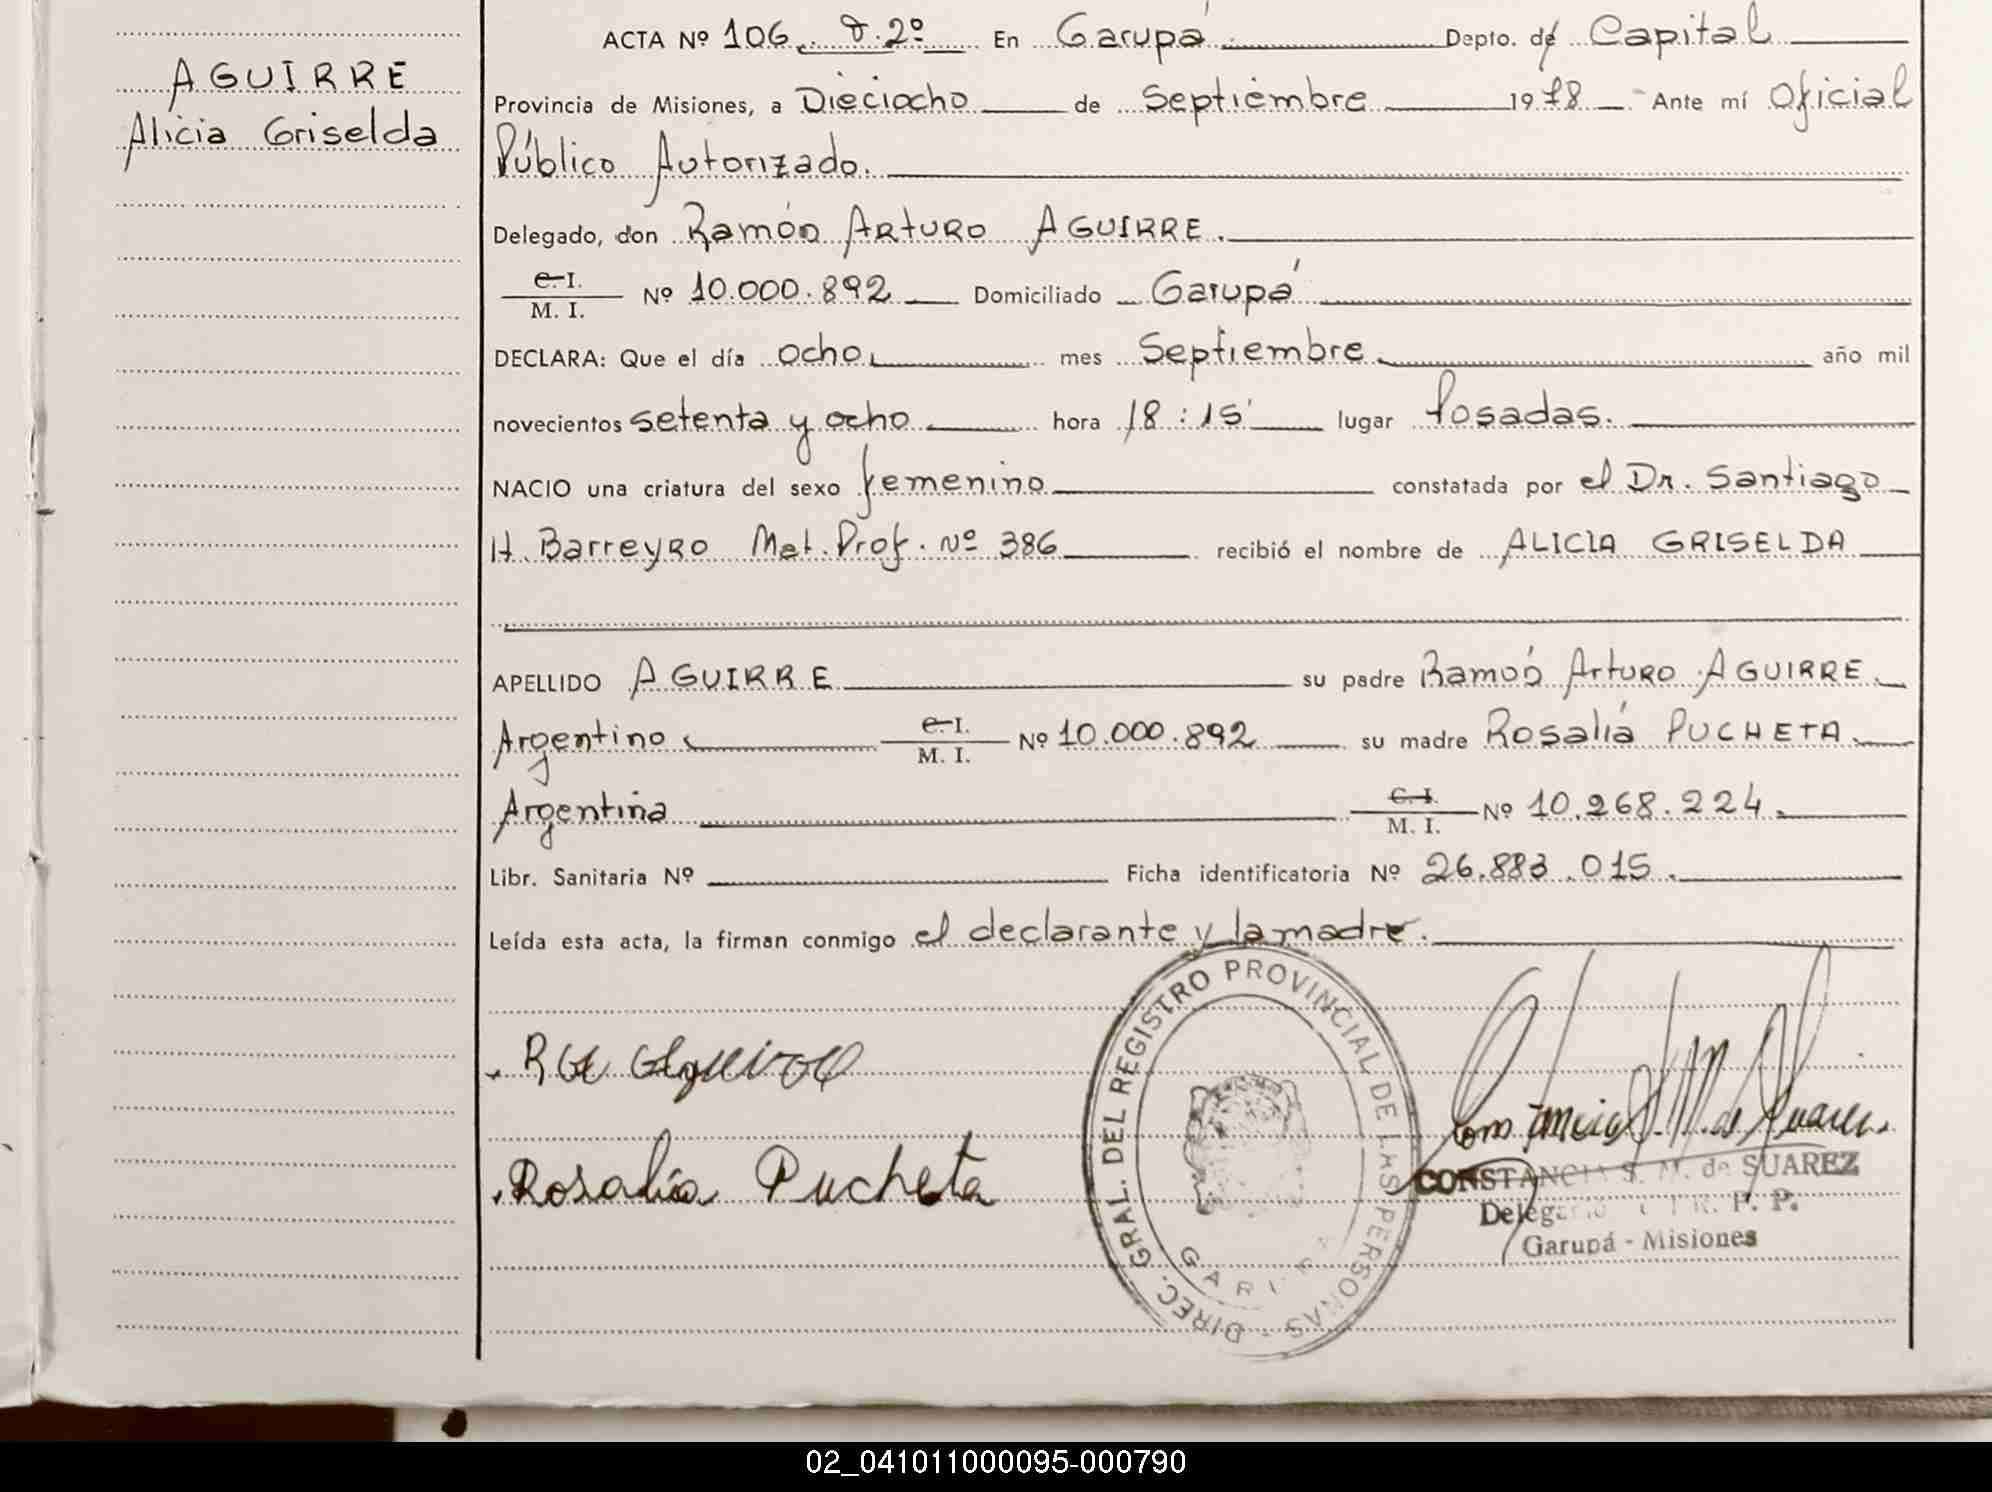 AGUIRRE
Alicia Griselda
ACTA Nº 106. 2º En Garupá Depto. de Capital
Provincia de Misiones, a Dieciocho de Septiembre 1978 Ante mí Oficial
Público Autorizado.
Delegado, don Ramón Arturo AGUIRRE.
C. I.
M. I. Nº 10.000.892 Domiciliado Garupá
DECLARA: Que el día ocho mes Septiembre año mil
novecientos setenta y ocho hora 18:15' lugar Posadas.
NACIO una criatura del sexo femenino constatada por el Dr. Santiago
H. Barreyro Mat. Prof. Nº 386 recibió el nombre de ALICIA GRISELDA
APELLIDO AGUIRRE su padre Ramón Arturo AGUIRRE
Argentino C. I.
M. I. Nº 10.000.892 su madre Rosalía PUCHETA
Argentina C. I.
M. I. Nº 10.268.224
Libr. Sanitaria Nº Ficha identificatoria Nº 26.883.015.
Leída esta acta, la firman conmigo el declarante y la madre.
Rosalía Pucheta
DIREC. GRAL. DEL REGISTRO PROVINCIAL DE LAS PERSONAS
GARUPA
CONSTANCIA S. M. de SUAREZ
R. P. P.
Garupá - Misiones
02_041011000095-000790